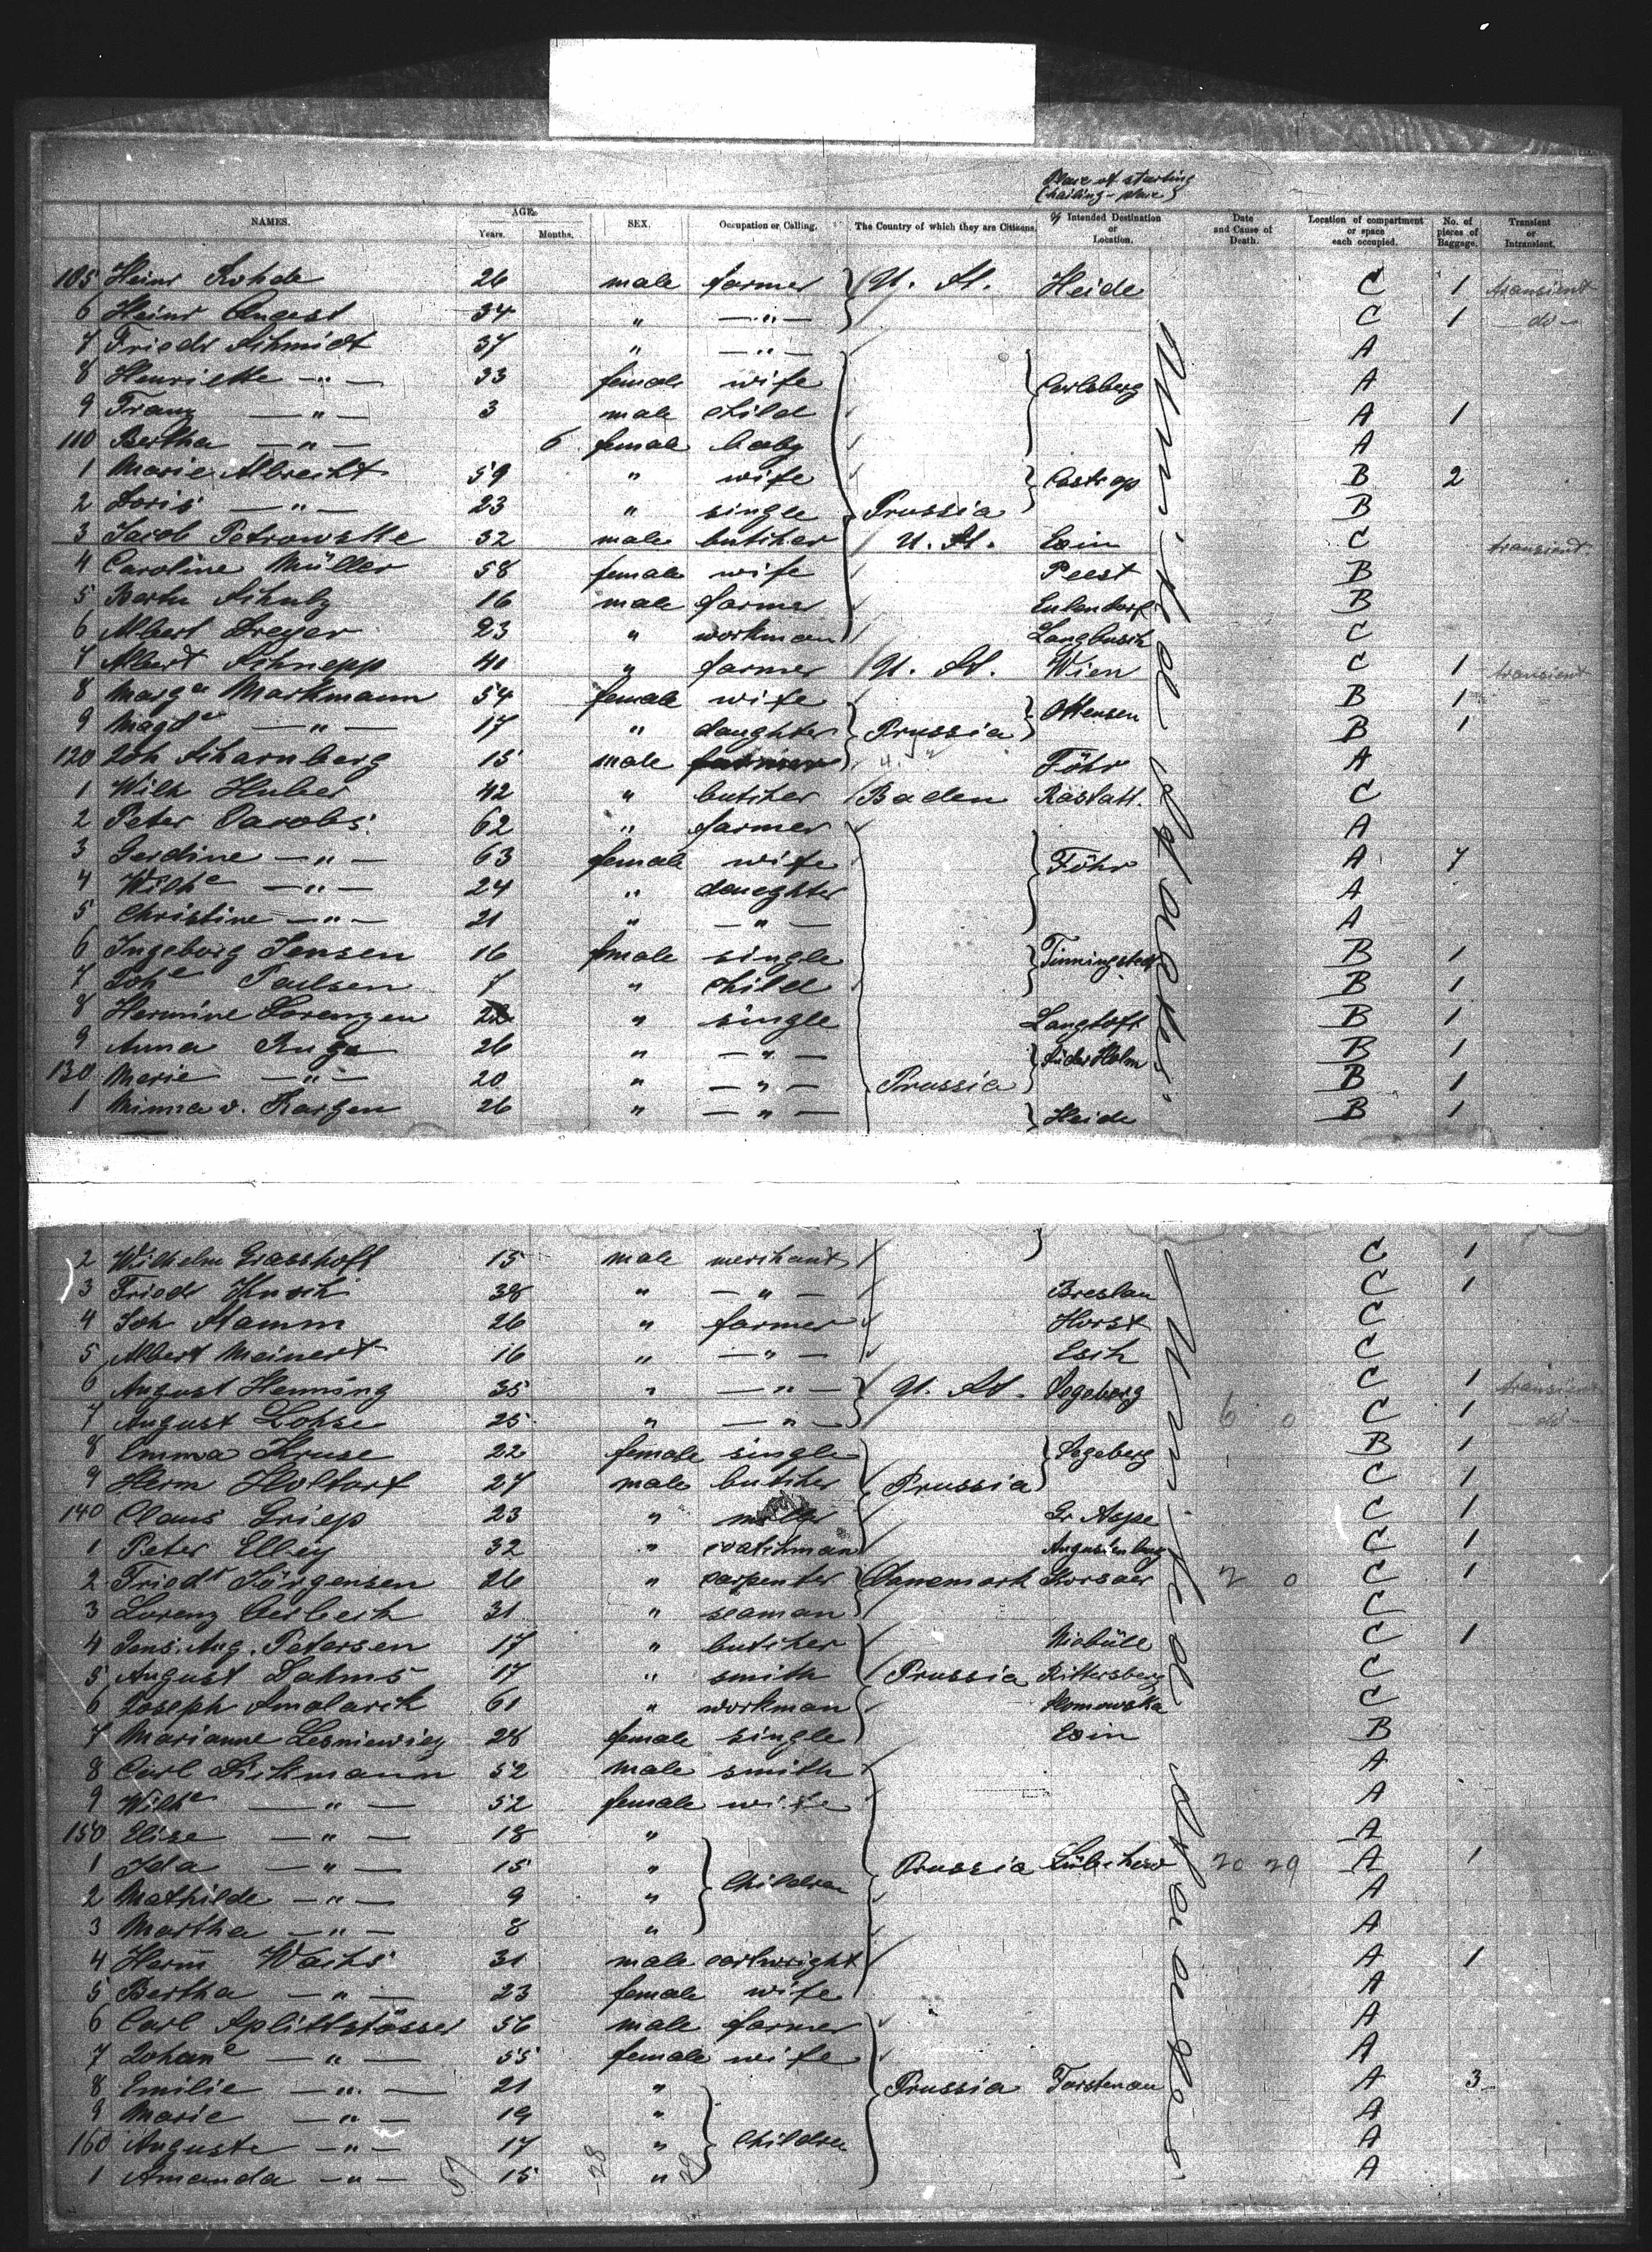 Place of starting
(hailing-place)
NAMES. AGE. Years. Months. SEX. Occupation or Calling. The Country of which they are Citizens. Intended Destination or Location. Date and Cause of Death. Location of compartment or space each occupied. No. of pieces of Baggage. Transient or Intransient.
105 Heinr Rohde 26 male farmer U. St. Heide C 1 transient
6 Heinr Angest 34 " —"— C 1 —do—
7 Friedr Schmidt 37 " —"— A
8 Henriette —"— 33 female wife Carlsberg A
9 Franz —"— 3 male child A 1
110 Bertha —"— 6 female baby A
1 Marie Albrecht 59 " wife Castrop B 2
2 Doris —"— 23 " single Prussia B
3 Jacob Petrowske 32 male butcher U. St. Exin C transient
4 Caroline Müller 58 female wife Peest B
5 Schulz 16 male farmer Eulendorf B
6 Albert Dreyer 23 " workman Langbusch C
7 Albert Schnepp 41 " farmer U. St. Wien C 1 transient
8 Marga Markmann 54 female wife Ottensen B 1
9 Magde —"— 17 " daughter Prussia B 1
120 Joh Scharnberg 15 male Föhr A
1 Wilh Huber 42 " butcher Baden Rastatt. C
2 Peter Jacobs 62 " farmer A
3 Gerdine —"— 63 female wife Föhr A 7
4 Wilhe —"— 24 " daughter A
5 Christine —"— 21 " —"— A
6 Ingeborg Jensen 16 female single Tinningstedt B 1
7 Johe Paulsen 7 " child B 1
8 Hermine Lorenzen " single Langtoft B 1
9 Anna Ruge 26 " —"— Süderholm B 1
130 Marie —"— 20 " —"— Prussia B 1
1 Minna v. Karzen 26 " —"— Heide B 1
United States
2 Wilhelm Grasshoff 15 male merchant C 1
3 Friedr Kusch 38 " —"— Breslau C 1
4 Joh Stamm 26 " farmer Horst C
5 Albert Meinert 16 " —"— Esch C
6 August Henning 35 " —"— U. St. Segeberg C 1 transient
7 August Lohse 25 " —"— 6 0 C 1 —do—
8 Emma Kruse 22 female single Segeberg B 1
9 Herm Holtorf 27 male butcher Prussia C 1
140 Claus Griep 23 " miller Gr Aspe C 1
1 Peter Elley 32 " coatchman Augustenburg C 1
2 Friedr Jörgensen 26 " carpenter Danemark Korsoer 2 0 C 1
3 Lorenz Gerberh 31 " seaman C
4 Jens. Aug. Petersen 17 " butcher Niebüll C 1
5 August Dahms 17 " smith Prussia Rittersberg C
6 Joseph Smolarek 61 " workman Slomowska C
7 Marianne Lesniewicz 28 female single Exin B
8 Carl Dickmann 52 male smith A
9 Wilhe —"— 52 female wife A
150 Elise —"— 18 " A
1 Ida —"— 15 " Children Prussia Lübchow 20 29 A 1
2 Mathilde —"— 9 " A
3 Martha —"— 8 " A
4 Herm Wachs 31 male cartwright A 1
5 Bertha —"— 23 female wife A
6 Carl Splittstösser 56 male farmer A
7 Johane —"— 55 female wife A
8 Emilie —"— 21 " Prussia Torstenau A 3
9 Marie —"— 19 " A
160 Auguste —"— 17 " Children A
1 Amanda —"— 15 " A
United States